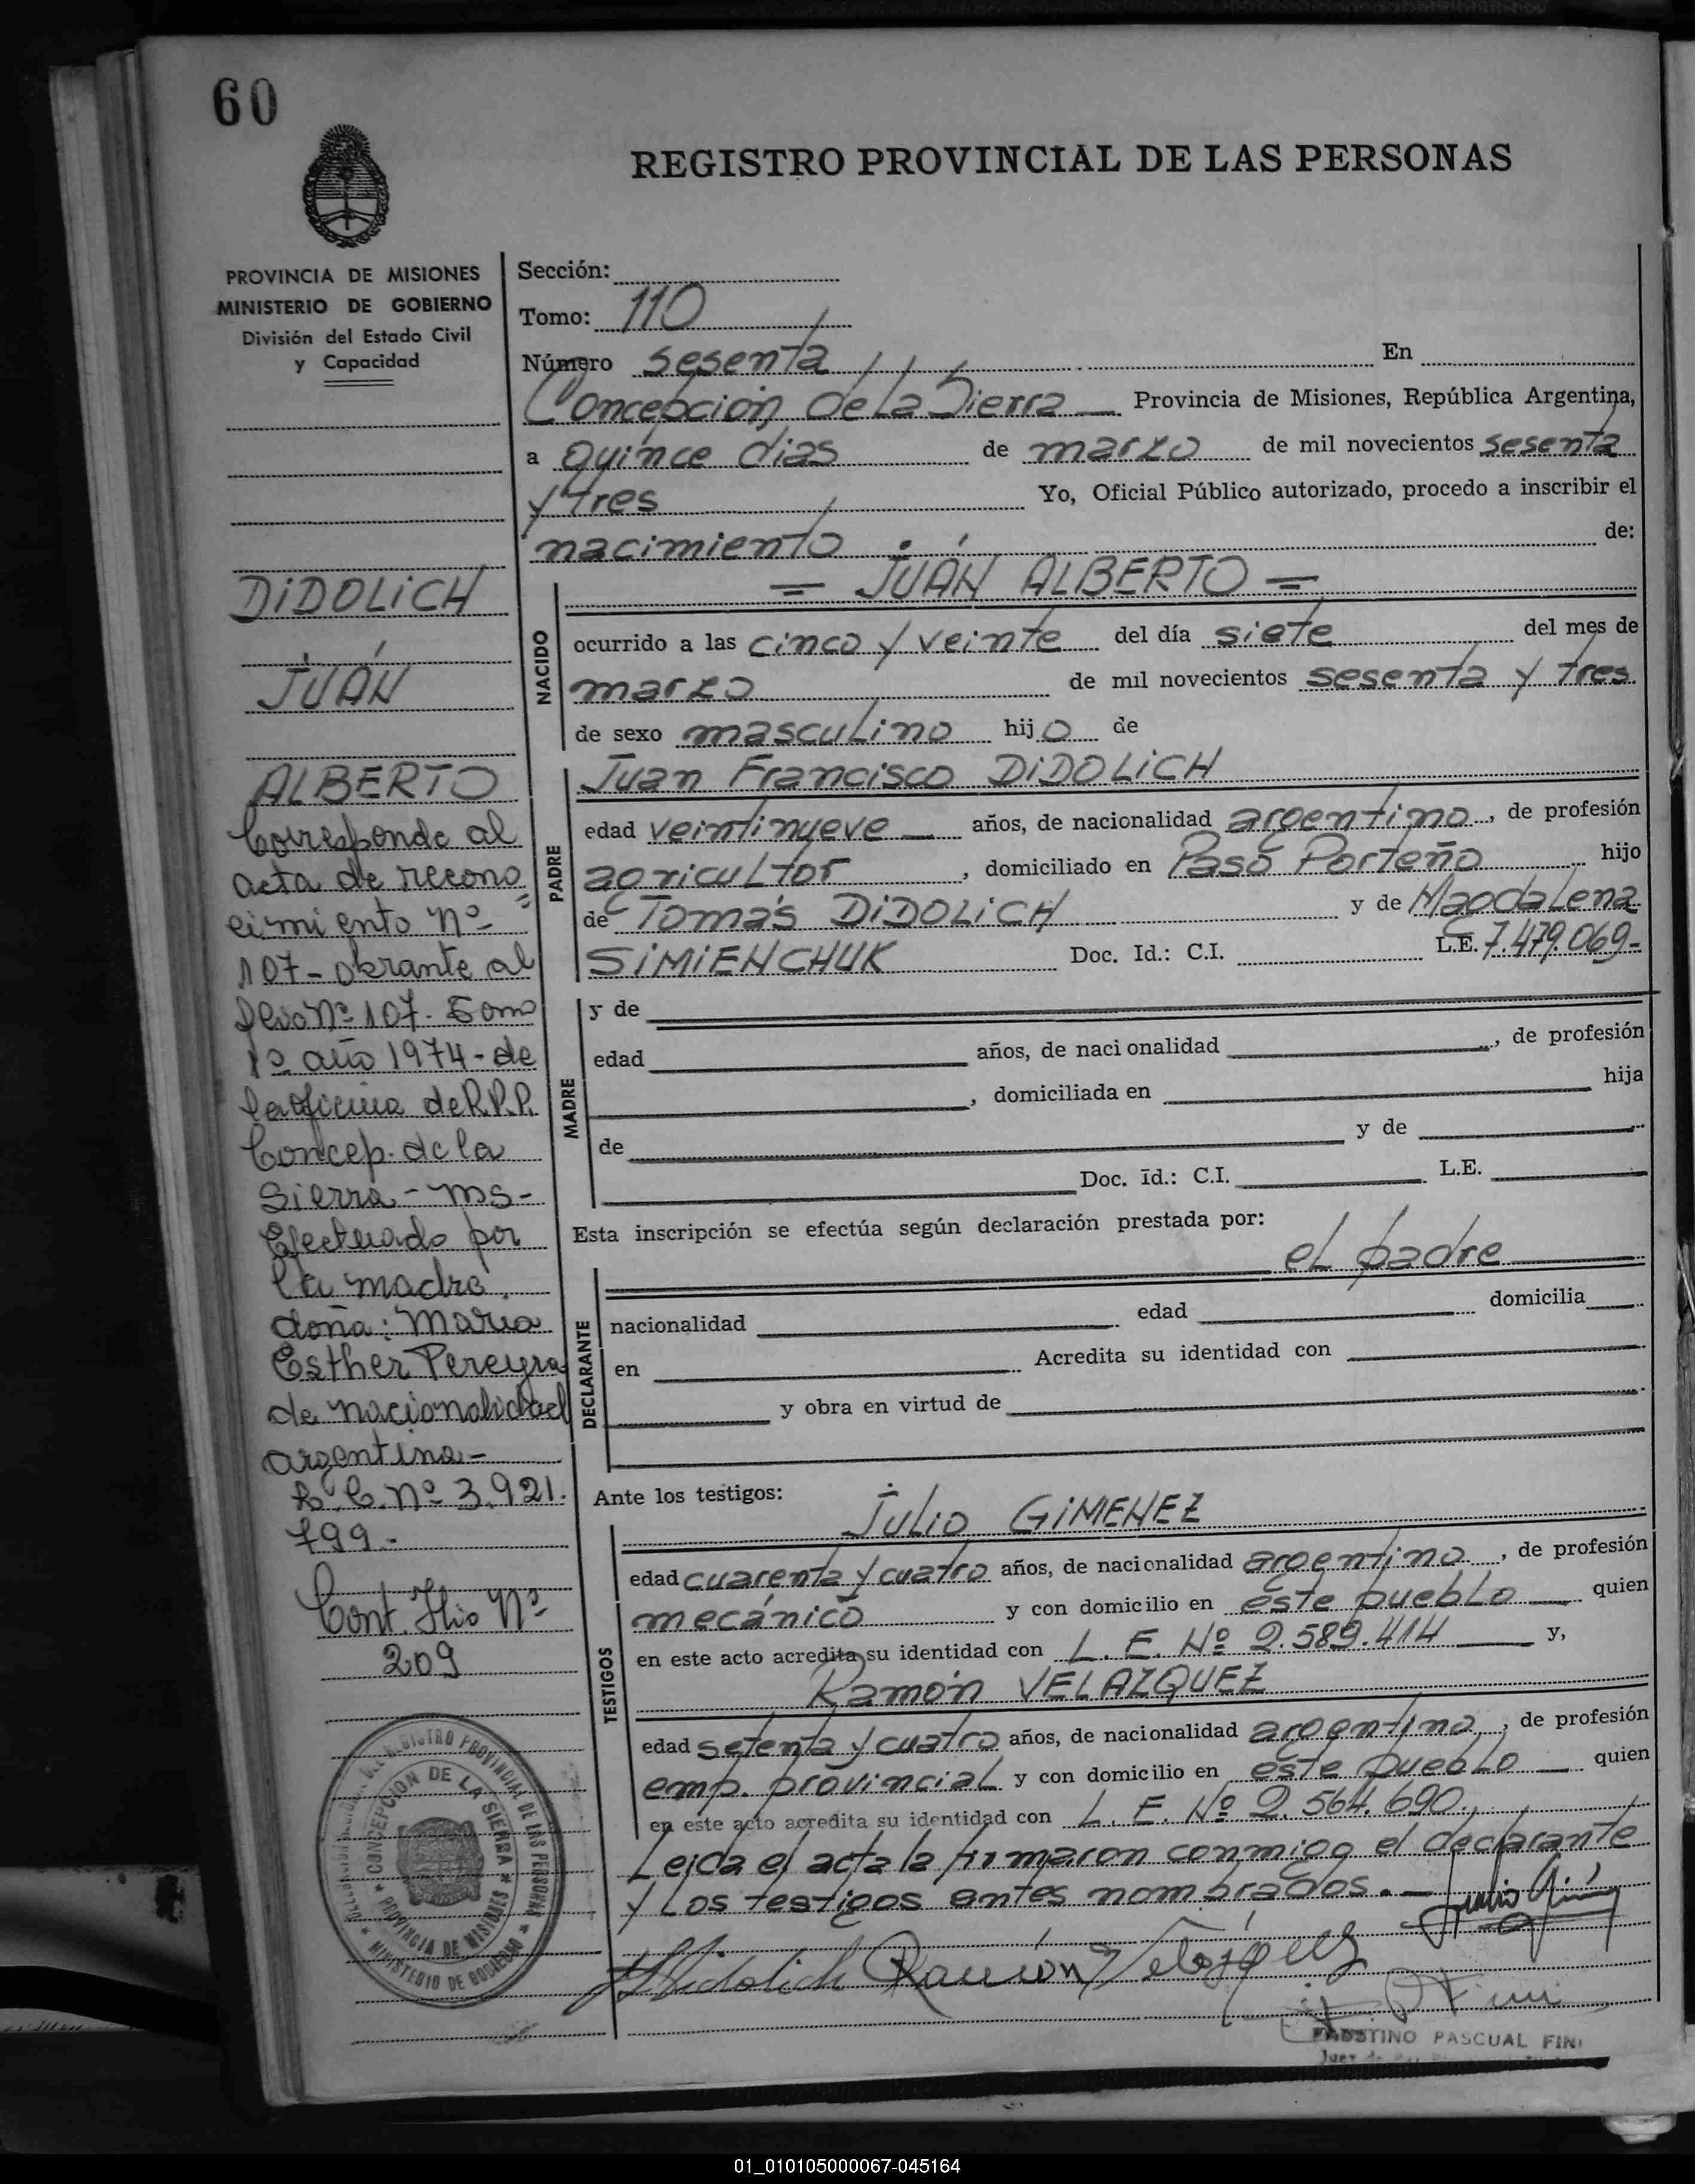 60
REGISTRO PROVINCIAL DE LAS PERSONAS
PROVINCIA DE MISIONES
MINISTERIO DE GOBIERNO
División del Estado Civil
y Capacidad
DiDOLiCH
JUAN
ALBERTO
Corresponde al
acta de recono
cimiento Nº
107 - obrante al
folio Nº 107. Tomo
1º año 1974 - de
la oficina de R.P.P.
Concep. de la
Sierra - Ms -
Efectuado por
la madre
doña: Maria
Esther Pereyra
de nacionalidad
argentina -
L.C. Nº 3.921.
799 -
Cont. Flio Nº
209
Sección:
Tomo: 110
Número sesenta En
Concepcion de la Sierra Provincia de Misiones, República Argentina,
a quince dias de marzo de mil novecientos sesenta
y tres Yo, Oficial Público autorizado, procedo a inscribir el
nacimiento de:
= JUAN ALBERTO =
NACIDO
ocurrido a las cinco y veinte del día siete del mes de
marzo de mil novecientos sesenta y tres
de sexo masculino hijo de
PADRE
Juan Francisco DiDOLiCH
edad veintinueve años, de nacionalidad argentino, de profesión
agricultor, domiciliado en Paso Porteño hijo
de Tomás DiDOLiCH y de Magdalena
SiMiENCHUK Doc. Id.: C.I. L.E. 7.479.069-
MADRE
y de
edad años, de nacionalidad , de profesión
, domiciliada en hija
de y de
Doc. Id.: C.I. L.E.
Esta inscripción se efectúa según declaración prestada por:
el padre
DECLARANTE
nacionalidad edad domicilia
en Acredita su identidad con
y obra en virtud de
Ante los testigos:
TESTIGOS
Julio GiMENEZ
edad cuarenta y cuatro años, de nacionalidad argentino, de profesión
mecánico y con domicilio en este pueblo quien
en este acto acredita su identidad con L. E. Nº 2.589.414 y,
Ramón VELAZQUEZ
edad setenta y cuatro años, de nacionalidad argentino, de profesión
emp. provincial y con domicilio en este pueblo quien
en este acto acredita su identidad con L. E. Nº 2.564.690.
Leida el acta la firmaron conmigo el declarante
y los testigos antes nombrados. -
Didolich Ramón Velázquez
FAUSTINO PASCUAL FINI
REGISTRO PROVINCIAL DE LAS PERSONAS
MINISTERIO DE GOBIERNO
CONCEPCION DE LA SIERRA
PROVINCIA DE MISIONES
01_010105000067-045164